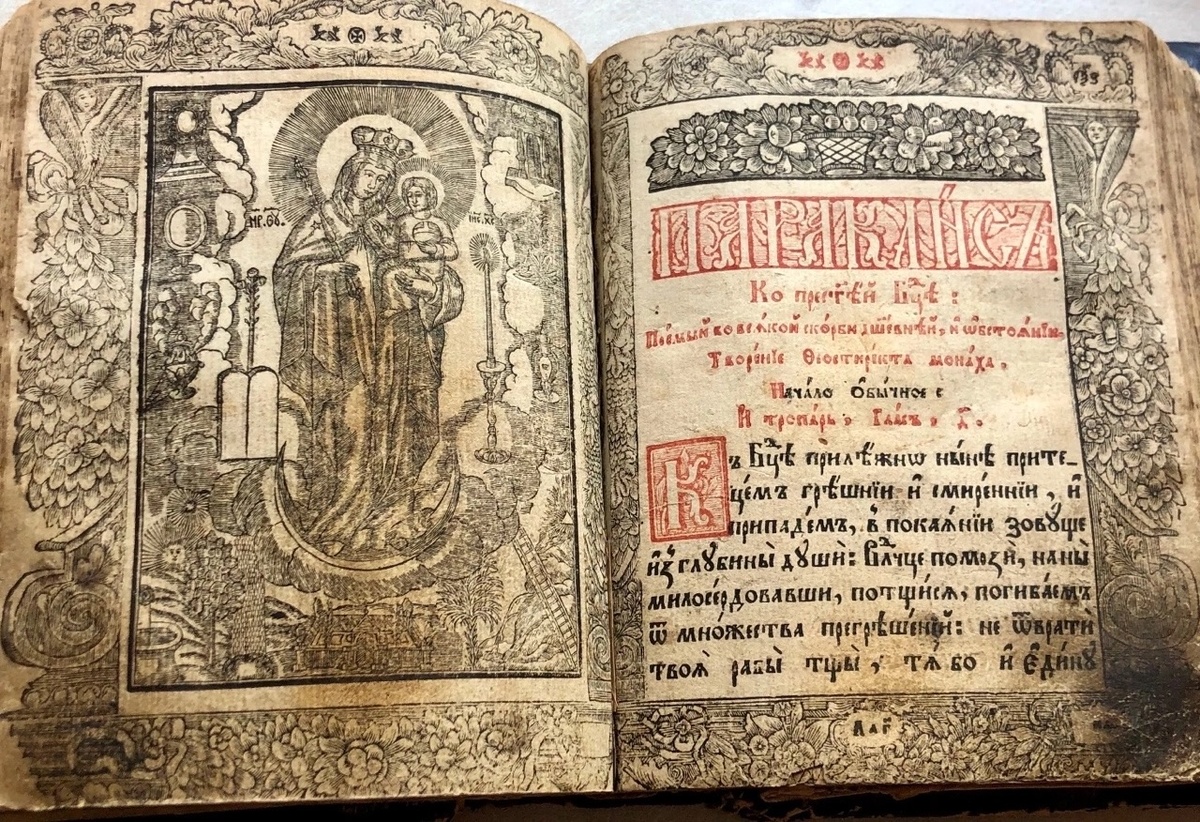 МР. ѲУ.
ІИС. ХС.
ПАРАКЛИСЪ
Ко прест҃ѣй Бц҃ѣ :
Пѣ́мый во вся́кой ско́рби дш҃е́внѣй, и҆ ѡ҆бстоѧ́нїи.
Творе́нїе Ѳеостири́кта мона́ха .
Нача́ло о҆бы́чное
И҆ тропа́рь , гла́съ , д҃.
Къ Бц҃ѣ прилѣ́жнѡ ны́нѣ прите_
це́мъ грѣ́шнїи и҆ смире́ннїи , и҆
припаде́мъ, в̾ покаѧ́нїи зову́ще
и҆з̾ глубины̀ души̂ : Влⷣчце помозѝ, на ны̀
милосе́рдовавши, потщи́сѧ, погиба́емъ
ѿ мно́жества прегрѣше́нїй : не ѿвратѝ
твоѧ̀ рабы̀ тщы̀ , тѧ́ бо и҆ є҆ди́нꙋ